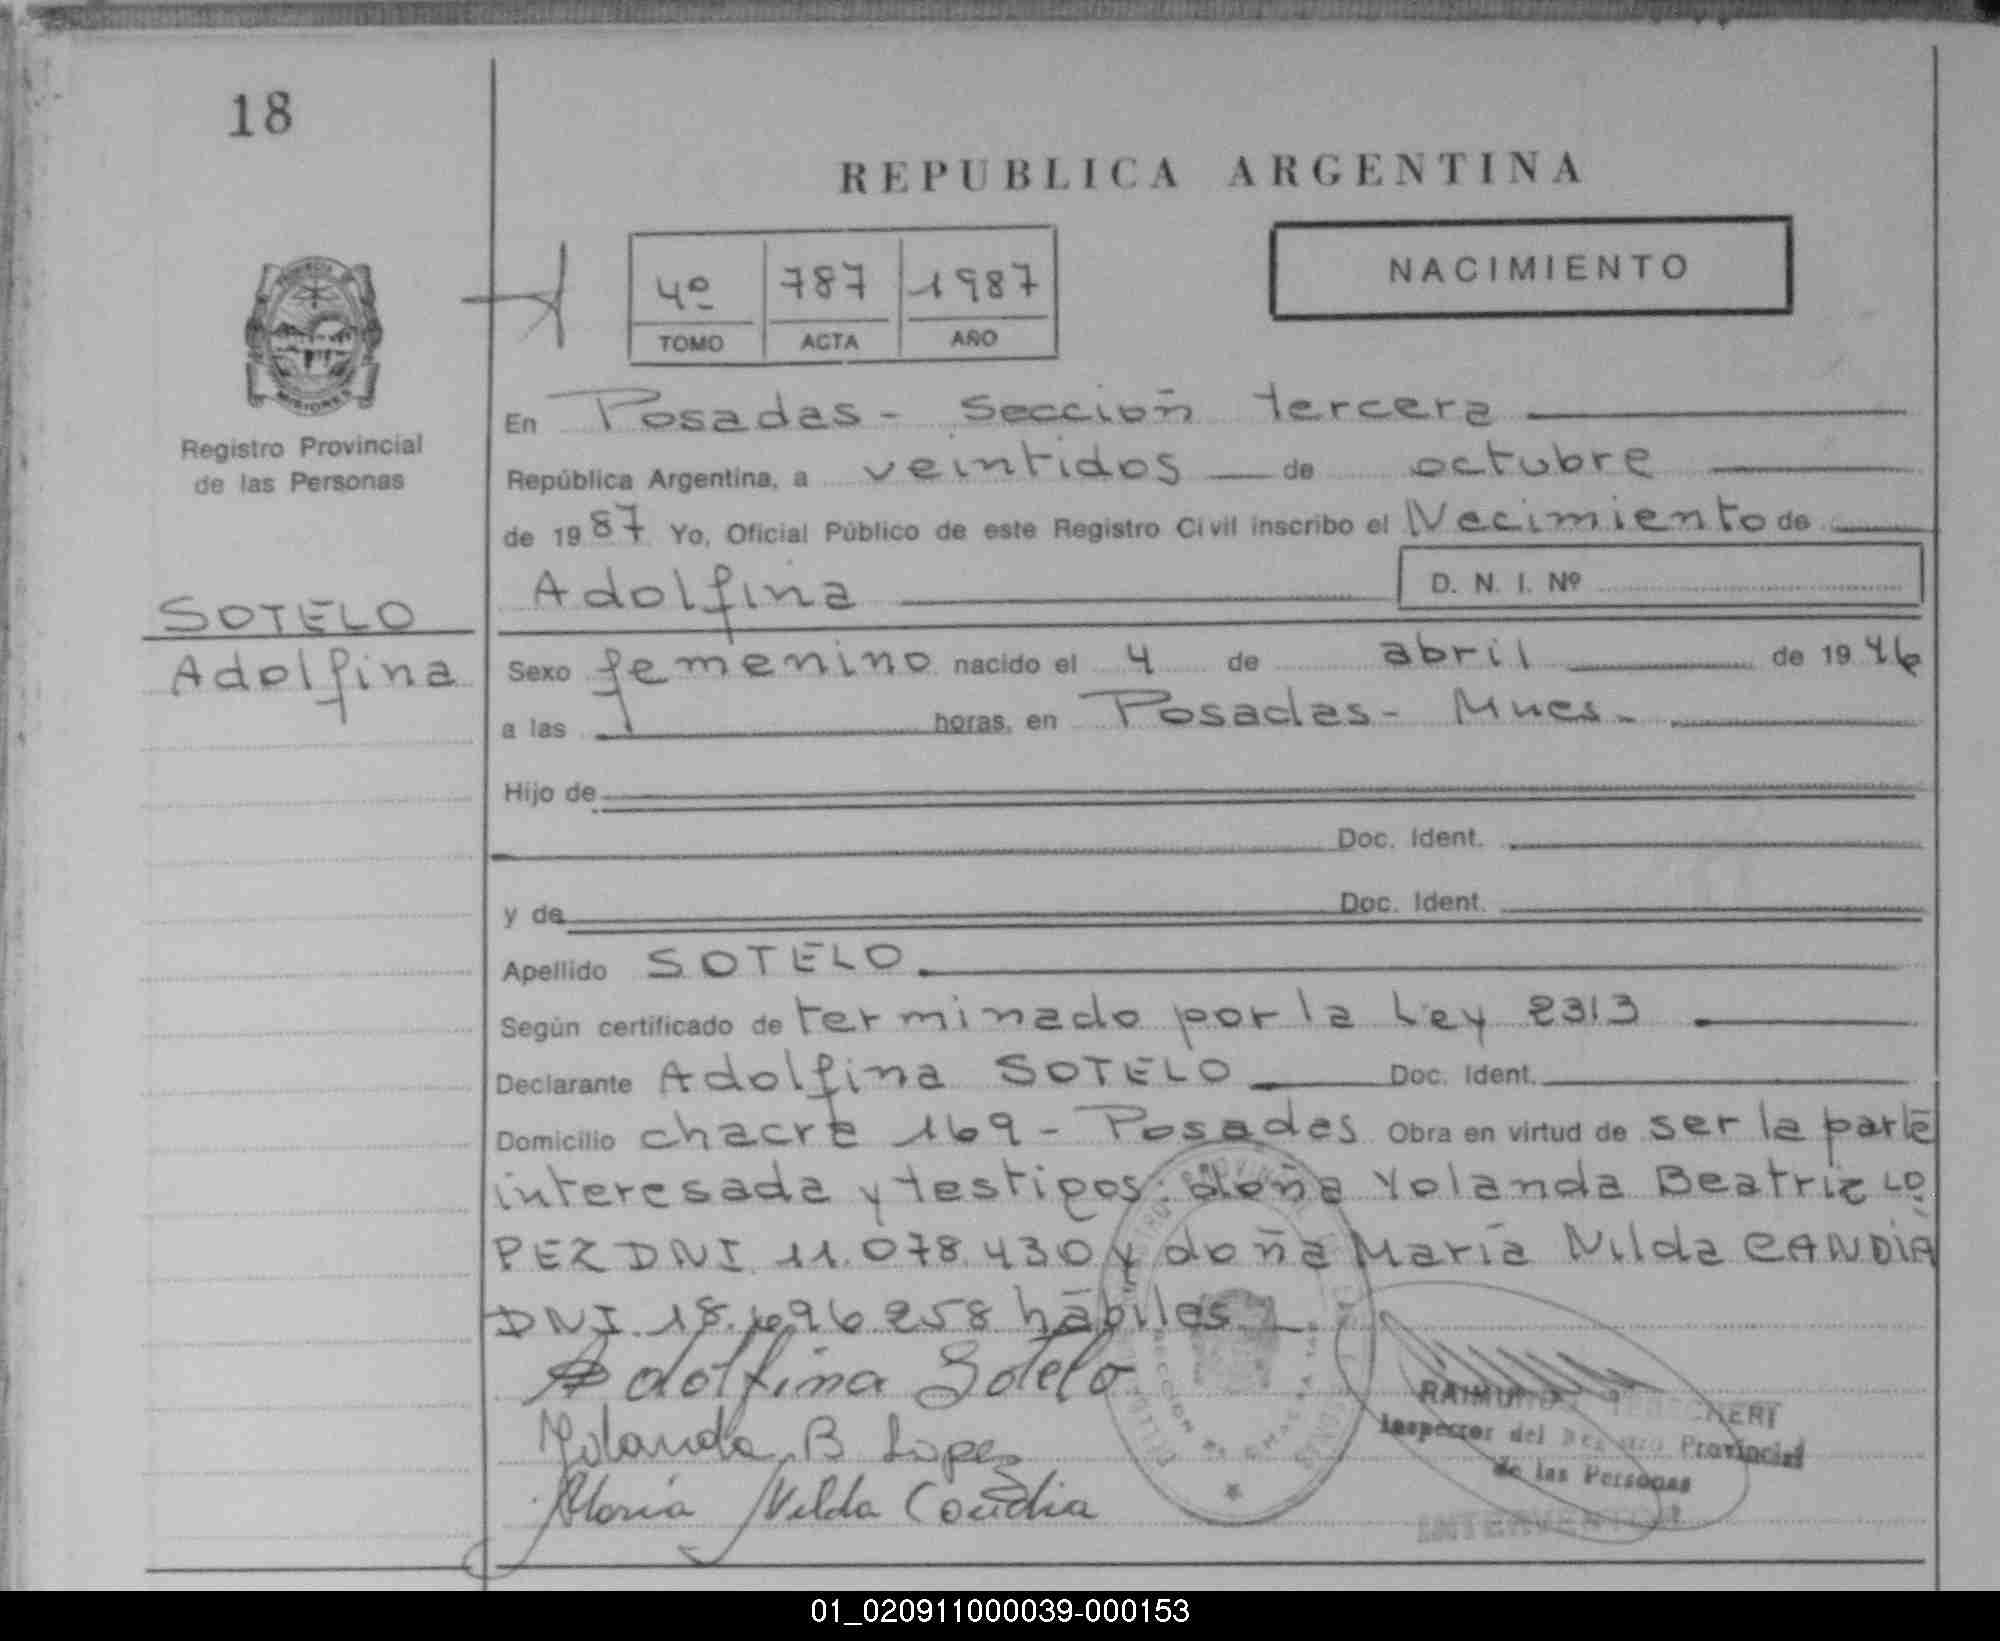 18
REPUBLICA ARGENTINA
4º 787 1987
TOMO ACTA AÑO
NACIMIENTO
Registro Provincial
de las Personas
SOTELO
Adolfina
En Posadas - Sección tercera
República Argentina, a veintidos de octubre
de 1987 Yo, Oficial Público de este Registro Civil inscribo el Nacimiento de
Adolfina D. N. I. Nº
Sexo femenino nacido el 4 de abril de 1946
a las horas, en Posadas - Mnes.
Hijo de
Doc. Ident.
y de Doc. Ident.
Apellido SOTELO
Según certificado de terminado por la Ley 2313
Declarante Adolfina SOTELO Doc. Ident.
Domicilio chacra 169 - Posadas Obra en virtud de ser la parte
interesada y testigos: doña Yolanda Beatriz LO
PEZ DNI. 11.078.430 y doña María Nilda CANDIA
DNI. 18.696.258 hábiles
Adolfina Sotelo
Yolanda B Lopez
María Nilda Candia
Inspector del Registro Provincial
de las Personas
INTERVENTOR
01_020911000039-000153